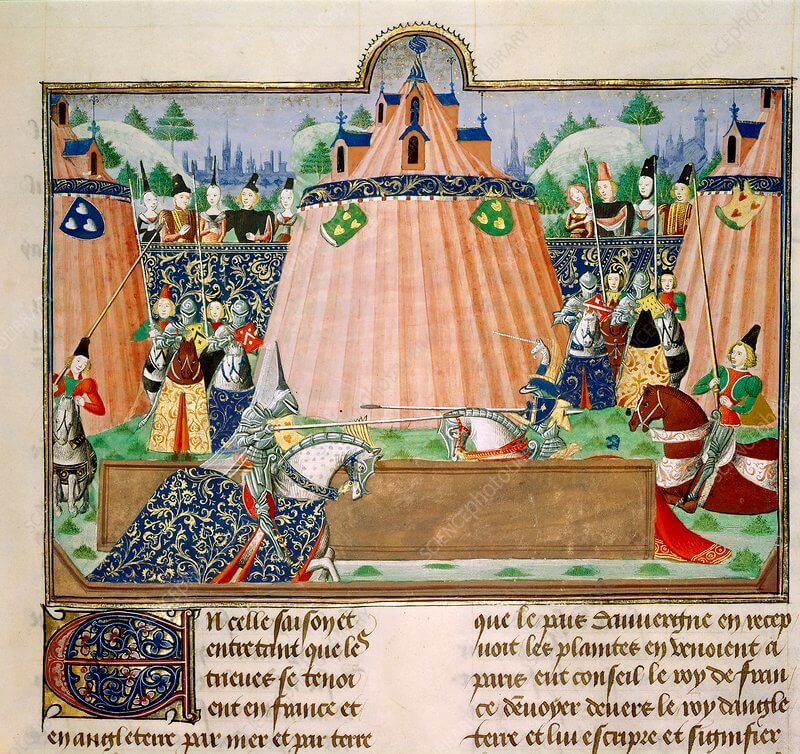 En celle saison et
entretant que les
trieves se tenoi
ent en france et
en angleterre par mer et par terre
que le pais dauvergne en recep
voit les plaintes en venoient a
paris eut conseil le roy de fran
ce denvoyer devers le roy dangle
terre et lui escripre et signifier
SCIENCEPHOTOLIBRARY